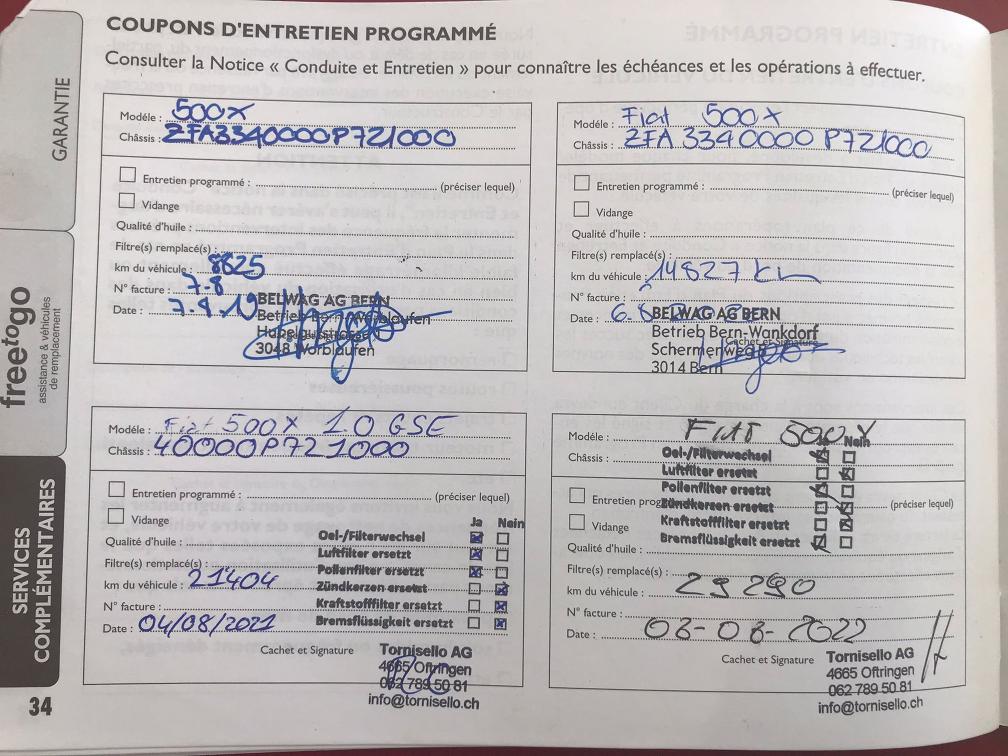 COUPONS D'ENTRETIEN PROGRAMMÉ
Consulter la Notice « Conduite et Entretien » pour connaître les échéances et les opérations à effectuer.
GARANTIE
freetogo
assistance & véhicules
de remplacement
SERVICES
COMPLÉMENTAIRES
34
Modèle : 500X
Châssis : ZFA3340000P721000
Entretien programmé : (préciser lequel)
Vidange
Qualité d'huile :
Filtre(s) remplacé(s) :
km du véhicule : 8625
N° facture : 7-8
Date : 7.9.19
BELWAG AG BERN
Betrieb Bern-Worblaufen
3048 Worblaufen
Modèle : Fiat 500X
Châssis : ZFA3340000P721000
Entretien programmé : (préciser lequel)
Vidange
Qualité d'huile :
Filtre(s) remplacé(s) :
km du véhicule : 14827 km
N° facture :
Date : 6.
BELWAG AG BERN
Betrieb Bern-Wankdorf
Cachet et Signature
Schermenweg
3014 Bern
Modèle : Fiat 500X 1.0 GSE
Châssis : 40000P721000
Entretien programmé : (préciser lequel)
Vidange
Ja Nein
Qualité d'huile : Oel-/Filterwechsel
Luftfilter ersetzt
Filtre(s) remplacé(s) : Pollenfilter ersetzt
km du véhicule : 21404 Zündkerzen ersetzt
N° facture : Kraftstofffilter ersetzt
Date : 04/08/2021 Bremsflüssigkeit ersetzt
Cachet et Signature
Tornisello AG
4665 Oftringen
062 789 50 81
info@tornisello.ch
Modèle : FIAT 500X
Nein
Châssis : Oel-/Filterwechsel
Luftfilter ersetzt
Pollenfilter ersetzt
Entretien programmé : Zündkerzen ersetzt (préciser lequel)
Vidange Kraftstofffilter ersetzt
Bremsflüssigkeit ersetzt
Qualité d'huile :
Filtre(s) remplacé(s) :
km du véhicule : 29290
N° facture :
Date : 08-08-2022
Cachet et Signature
Tornisello AG
4665 Oftringen
062 789 50 81
info@tornisello.ch